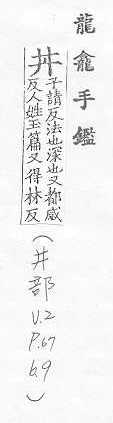 龍龕手鑑
丼
子請反法也深也又都感
反人姓玉篇又得林反
(井部
V.2
P.67
b.9)